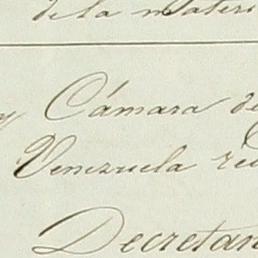 de la materi
y Cámara de
Venezuela reu
Decretan